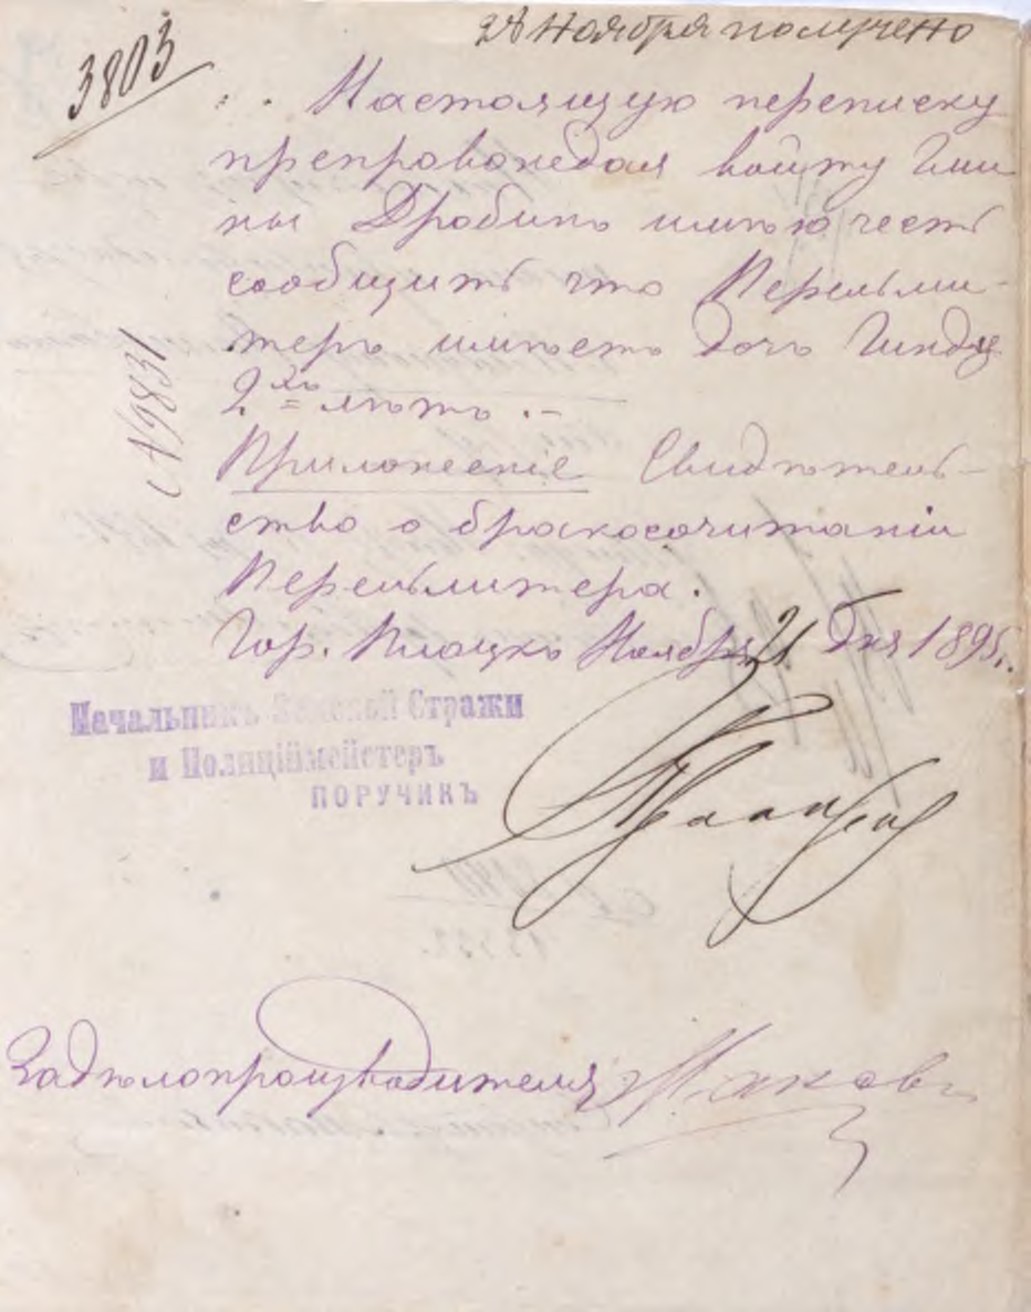 28 Ноября получено
3803
Настоящую переписку
препровождая войту Гми
ны Дробинъ имѣю честь
сообщить что Перельми-
теръ имѣетъ дочь Гинду
2хъ лѣтъ.-
№9831
Приложеніе Свидѣтель-
ство о бракосочитаніи
Перельмитера.
Гор. Плоцкъ Ноября 21 дня 1895 г.
Начальникъ Земской Стражи
и Полиціймейстеръ
ПОРУЧИКЪ
За дѣлопроизводителя